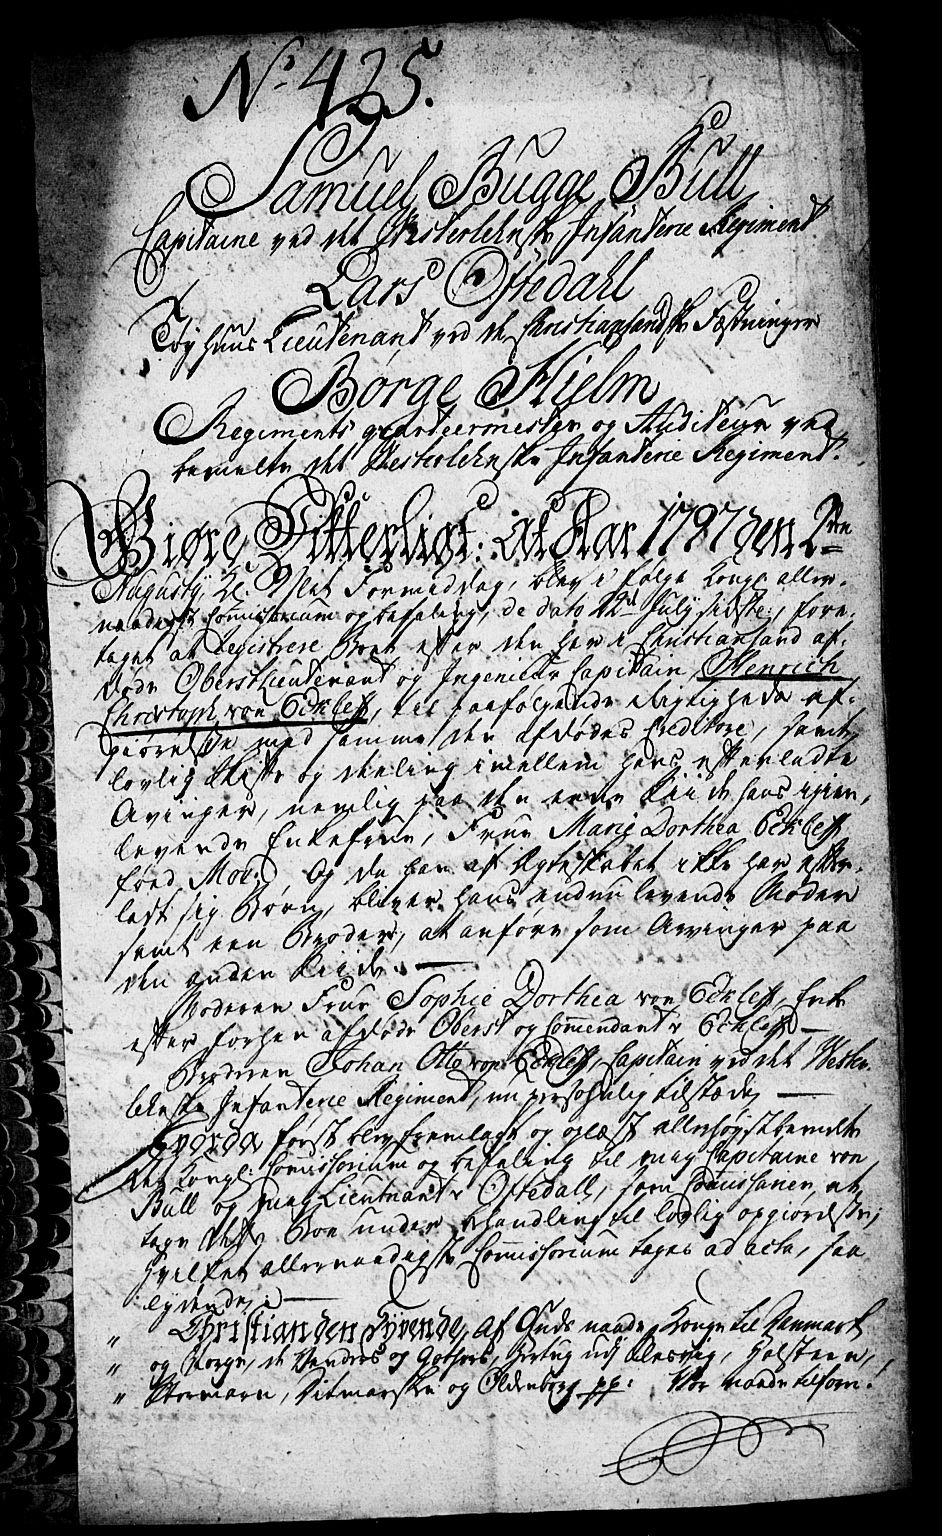 No 425.
Samuel Bugge Bull
Capitaine ved det Westerlehnske Infanterie Regiment
Lars Oftedahl
Tøyhuus Lieutenant ved de Christiansandske Fæstninger
Børge Hielm
Regiments quarteermester og Auditeur ved
bemelte det Westerlehnske Infanterie Regiment.
Giøre Vitterligt: at Aar 1797 den 2den
Augusty, Kl. 9 slet Formiddag, blev i følge Konge aller-
naadigst Commissorium og befaling, de dato 12te July sidste, fore-
taget at Registrere Boet efter den her i Christiansand af-
døde Oberstlieutenant og Ingenieur Capitain Henrich
Christoph von Eckleff, til paafølgende Rigtigheds af-
giørelse med samme den afdødes Creditore, samt
lovlig Skifte og deeling imellem hans efterladte
Arvinger, nemlig paa den eene Side hans igien-
levende Enkefrue, Frue Marie Dorthea Eckleff
fød Moe. Og da han af Ægteskabet ikke har efter-
ladt sig Børn, bliver hans endnu levende Moder
samt een Broder, at anføre som Arvinger paa
den anden Side. —
Moderen Frue Sophie Dorthea von Eckleff, Enke
efter forhen afdøde Oberst og Commendant v Eckleff —
Broderen Johan Otto von Eckleff, Capitain ved det Wester-
lehnske Infanterie Regiment, nu personlig tilstæde, —
Hvorda først blev fremlagt og oplæst allerhøystbemelte
det Kongl: Commissorium og befaling til mig Capitaine von
Bull og mig Lieutnant v Oftedall, som Commissairer, at
tage dette Boe under Behandling til lovlig opgiørelse;
hvilket allernaadigste Commissorium tages ad acta, saa
lydende: —
" Christian den Syvende, af Guds naade Konge til Danmark
" og Norge, de Venders og Gothers, Hertug udj Slesvig, Holsteen,
" Stormarn, Ditmarsken og Oldenborg pp: Vor naade tilforn!